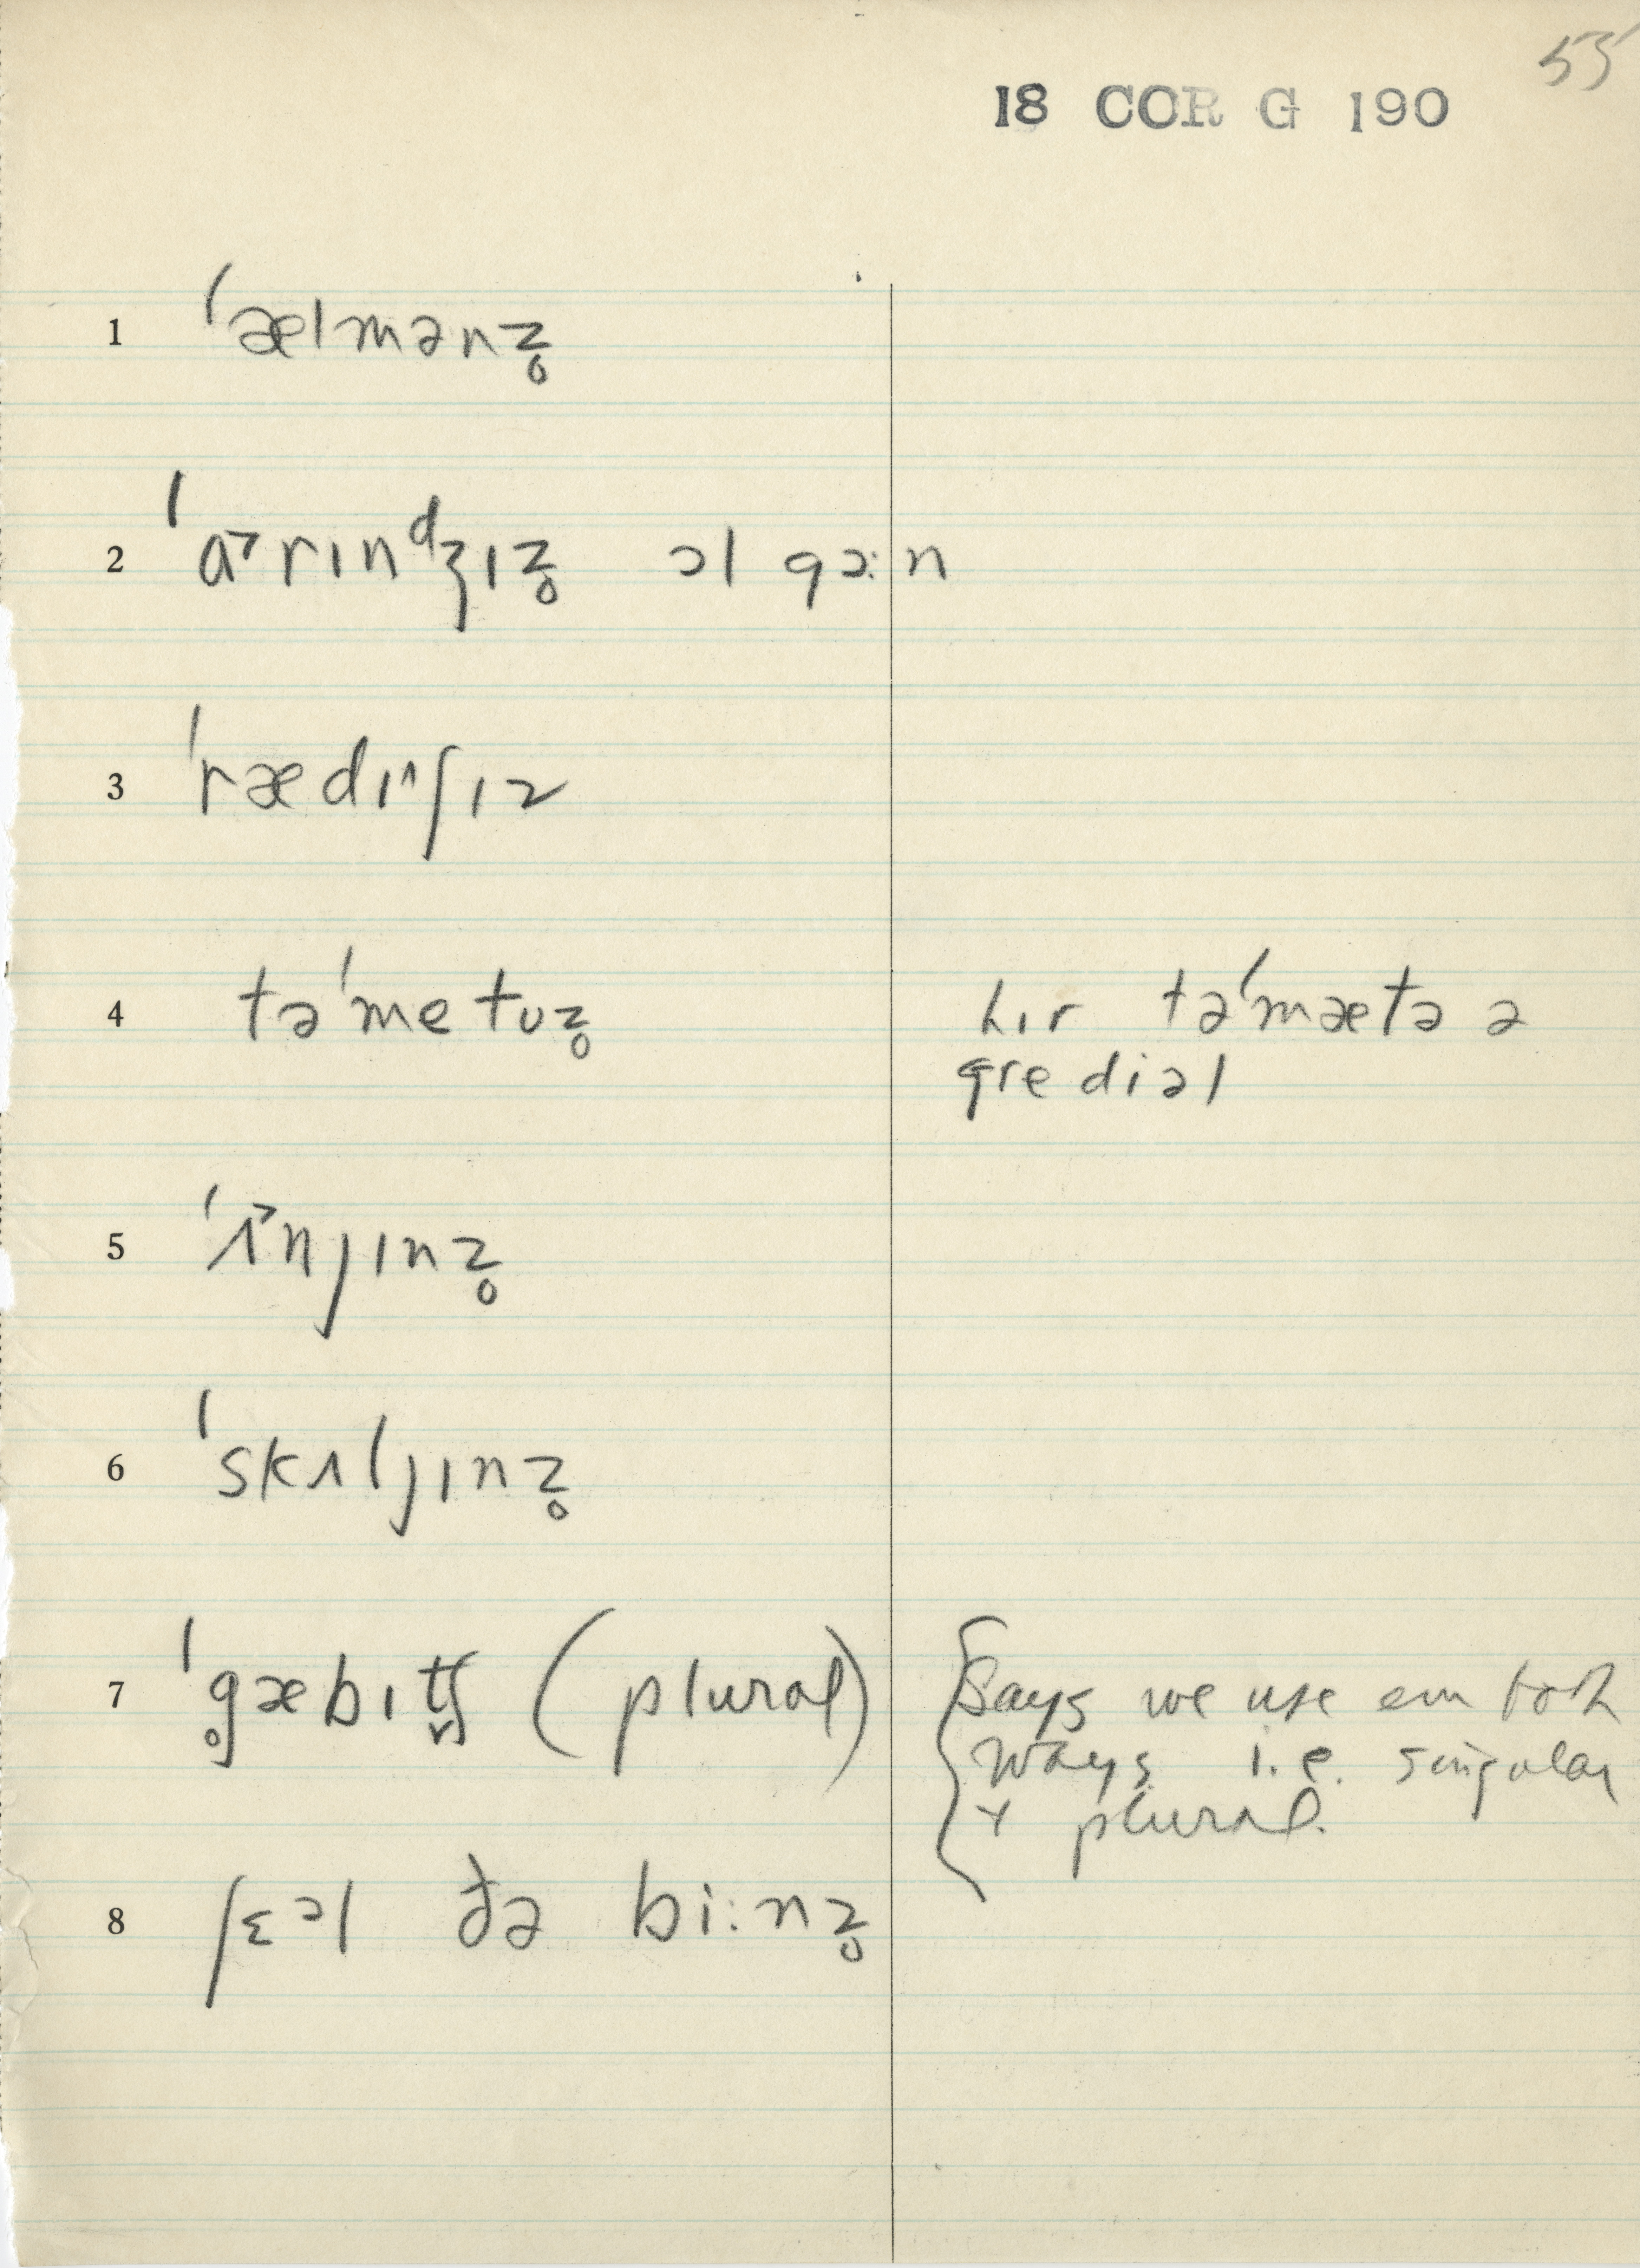 55
18 COR G 190
1 ˈælmənz̥
2 ˈɑ˃rɪnᵈʒɪz̥ ɔl gɔ:n
3 ˈrædɪ˄ʃɪz
4 təˈmetʊz̥ hɪr təˈmætə ə
gredɪəl
5 ˈʌ˃nјɪnz̥
6 ˈskʌljɪnz̥
7 ˈg̥æbɪt̬ʃ (plural) {Says we use em both
ways i.e. singular
+ plural.
8 ʃɛᵊl ðə bi:nz̥